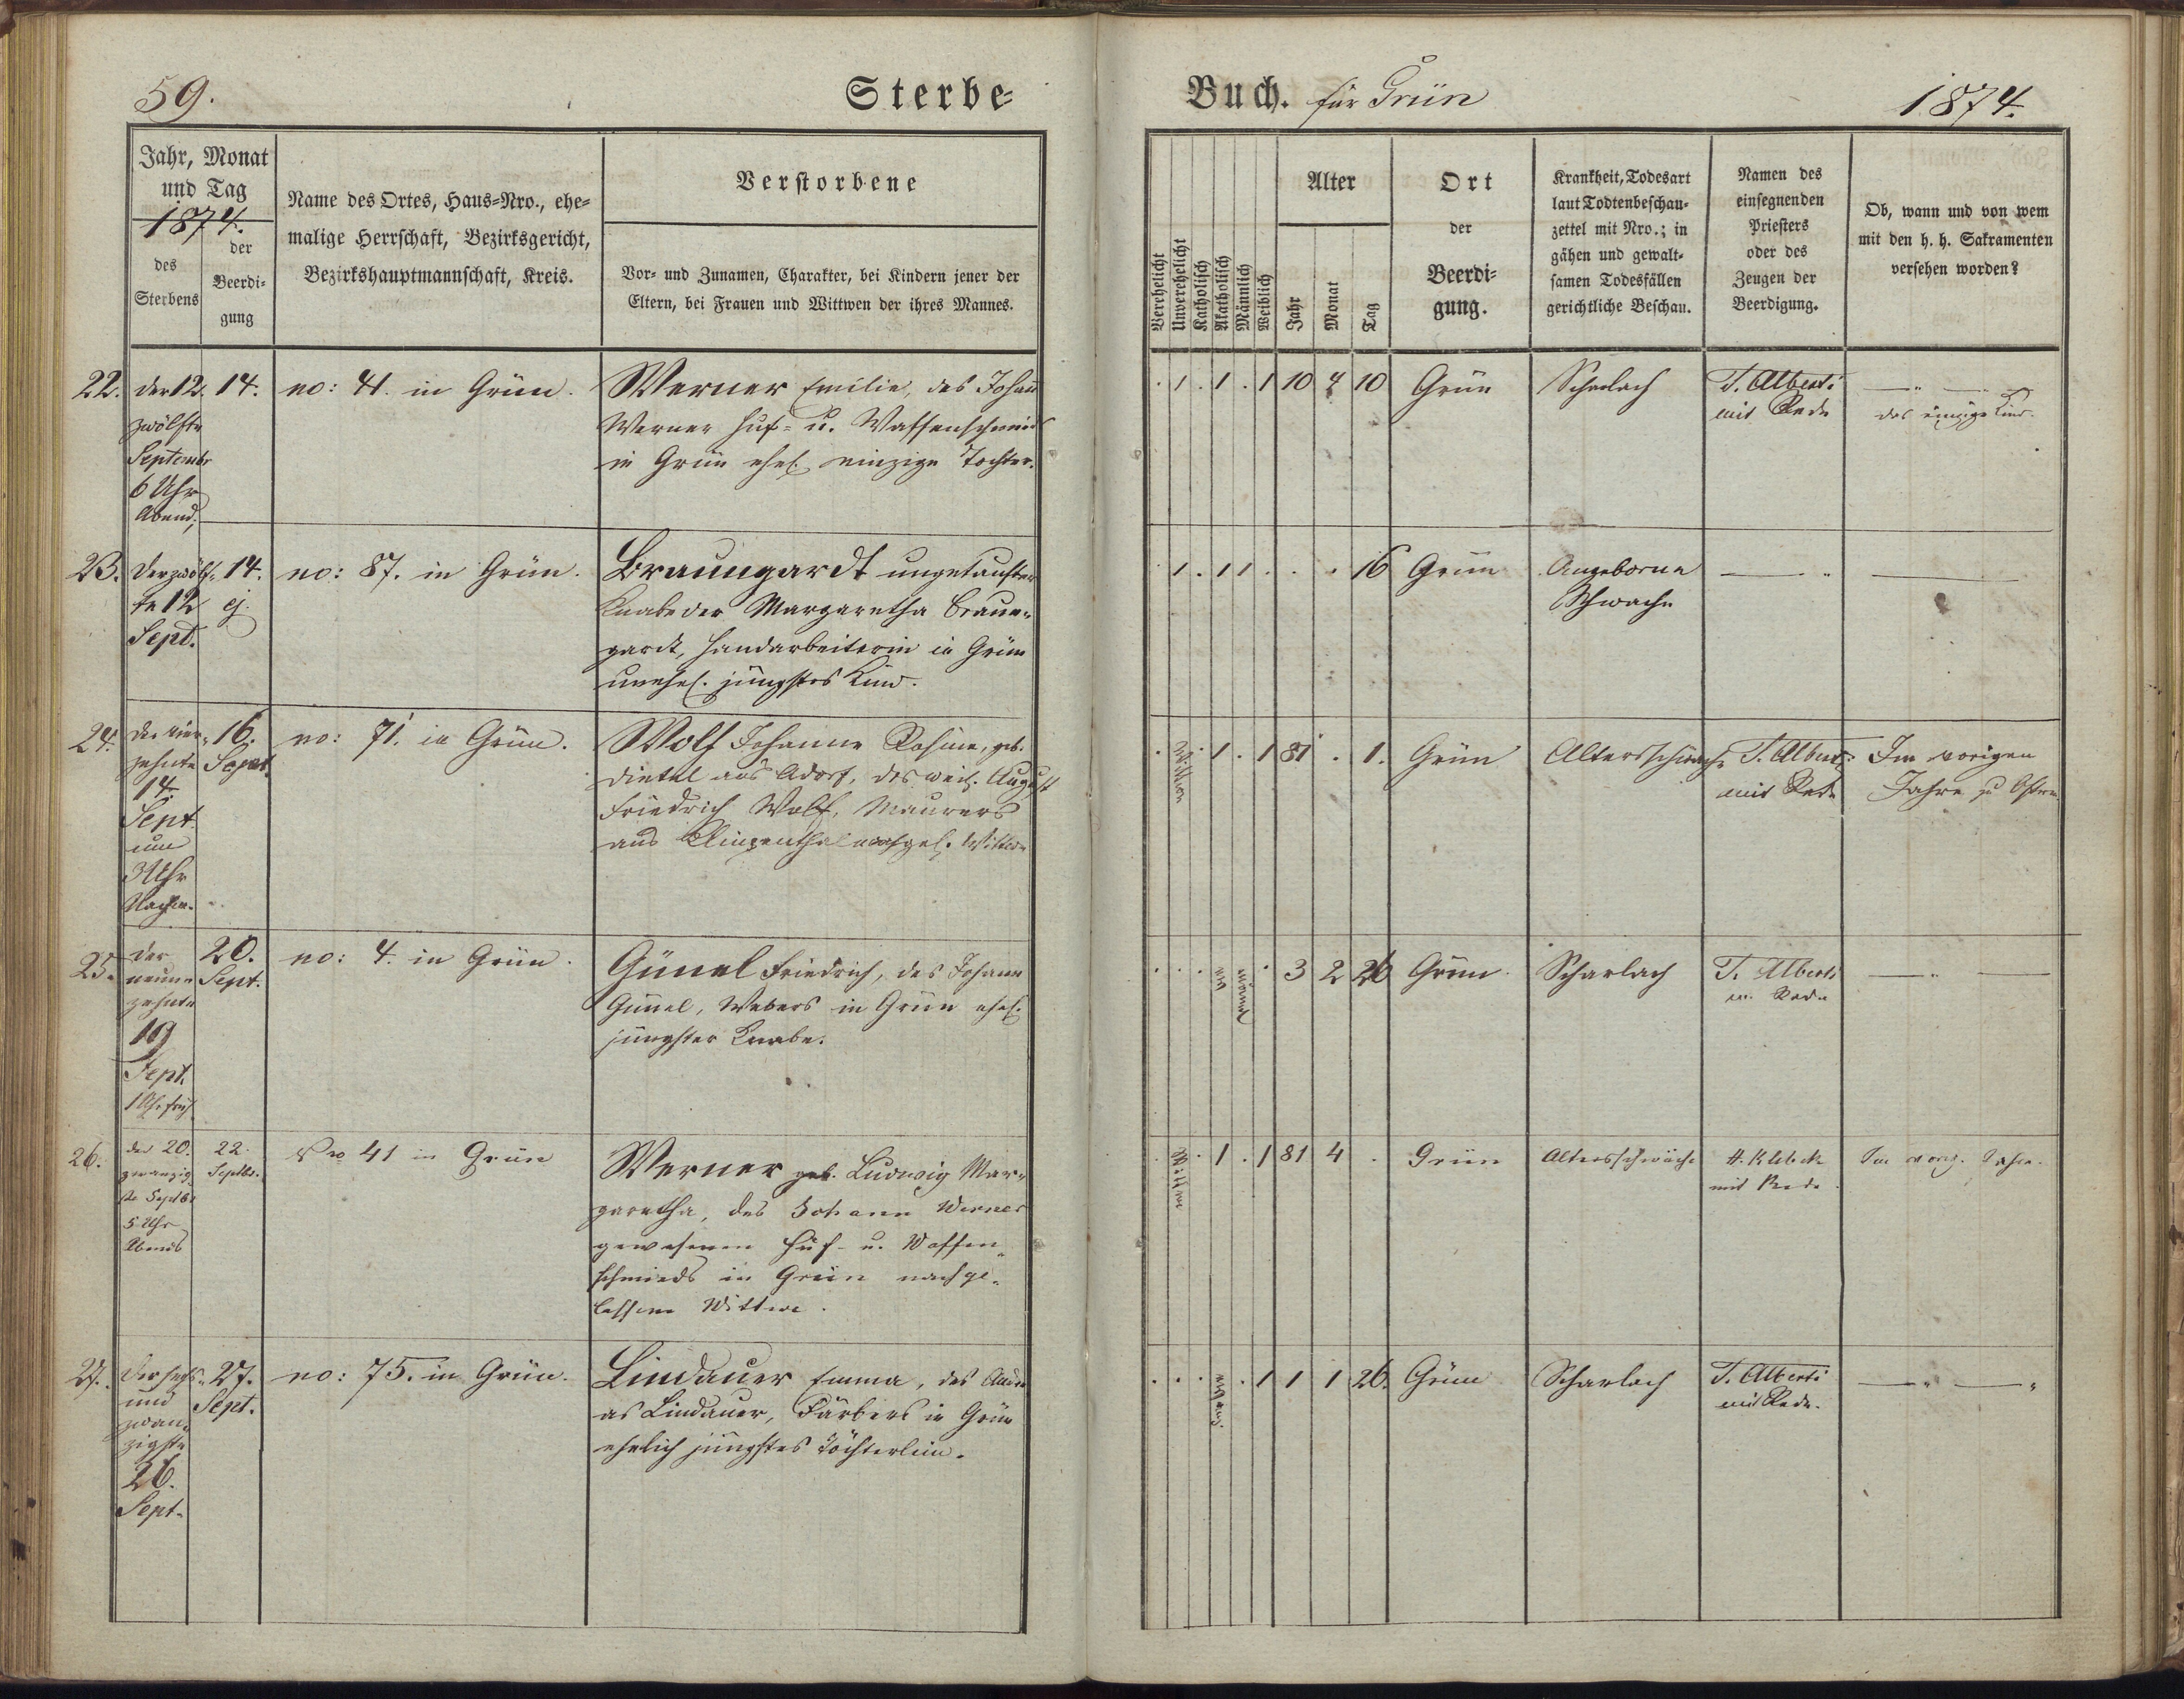 59.
Sterbe-
Jahr, Monat
und Tag
1874.
des
Sterbens
der
Beerdi-
gung
Name des Ortes, Haus-Nro., ehe-
malige Herrschaft, Bezirksgericht,
Bezirkshauptmannschaft, Kreis.
Verstorbene
Vor- und Zunamen, Charakter, bei Kindern jener der
Eltern, bei Frauen und Wittwen der ihres Mannes.
22. der 12. 14. no: 41. in Grün. Werner Emilie, des Johann
zwölfte Werner Huf- u. Waffenschmied
Septembr in Grün ehel. einzige Tochter.
6 Uhr
Abend,
23. Der zwölf- 14. no: 87. in Grün. Braungardt ungetaufter
te 12 ej. Knabe der Margaretha Braun-
Sept. gardt, Handarbeiterin in Grün
unehel. jüngstes Kind.
24. Der vier- 16. no: 71. in Grün. Wolf Johanne Rosine, geb.
zehnte Sept. Dietel aus Adorf, des weil. August
14. Friedrich Wolf, Maurers
Sept. aus Klingenthal nachgel. Wittwe
um
3 Uhr
Nachm.
25. Der 20. no: 4. in Grün. Günel Friedrich, des Johann
neun- Sept. Günel, Webers in Grün ehel.
zehnte jüngster Knabe.
19
Sept.
1 Uhr früh
26. der 20. 22. No 41 in Grün Werner geb. Ludwig Mar-
zwanzig Septbr. garetha, des Johann Werner
ste Septbr gewesenen Huf- u. Waffen-
5 Uhr schmieds in Grün nachge-
Abends lassene Wittwe.
27. Der sechs- 27. no: 75. in Grün. Lindauer Emma, des
und Sept. as Lindauer, Färbers in Grün
zwan- ehelich jüngstes Töchterlein.
zigste
26.
Sept.
Buch. für Grün
1874.
Verehelicht
Unverehelicht
Katholisch
Akatholisch
Männlich
Weiblich
Alter
Jahr
Monat
Tag
Ort
der
Beerdi-
gung.
Krankheit, Todesart
laut Todtenbeschau-
zettel mit Nro.; in
gähen und gewalt-
samen Todesfällen
gerichtliche Beschau.
Namen des
einsegnenden
Priesters
oder des
Zeugen der
Beerdigung.
Ob, wann und von wem
mit den h. h. Sakramenten
versehen worden?
. 1 . 1 . 1 10 4 10 Grün Scharlach T. Alberti — " —
mit Rede das einzige Kind.
. 1 . 1 1 . . . 16 Grün Angeborne — " —
Schwäche
. Wittwe . 1 . 1 81 . 1. Grün Altersschwäche T. Alberti Im vorigen
mit Rede Jahre zu Ostern
. . . . 3 2 26 Grün Scharlach T. Alberti — " —
m. Rede
. Wittwe . 1 . 1 81 4 . Grün Altersschwäche mit Rede Im vorig. Jahre.
. . . . 1 1 1 26. Grün Scharlach T. Alberti — " — "
mit Rede.